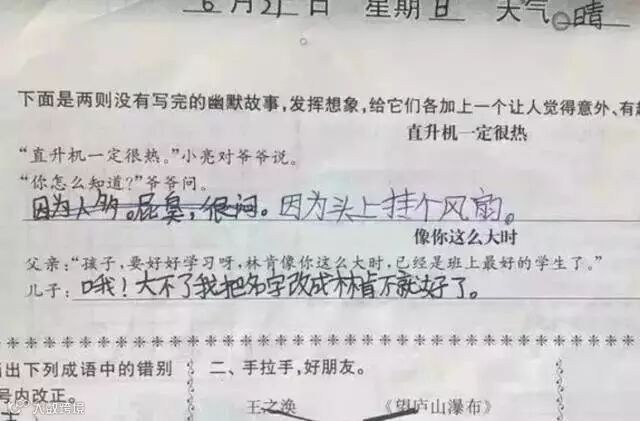 6月21日 星期日 天气 晴
下面是两则没有写完的幽默故事，发挥想象，给它们各加上一个让人觉得意外、有趣
直升机一定很热
“直升机一定很热。”小亮对爷爷说。
“你怎么知道？”爷爷问。
因为人多。屁臭，很闷。因为头上挂个风扇。
像你这么大时
父亲：“孩子，要好好学习呀，林肯像你这么大时，已经是班上最好的学生了。”
儿子：哦！大不了我把名字改成林肯不就好了。
出下列成语中的错别
二、手拉手，好朋友。
号内改正。
王之涣 《望庐山瀑布》
大数跨境